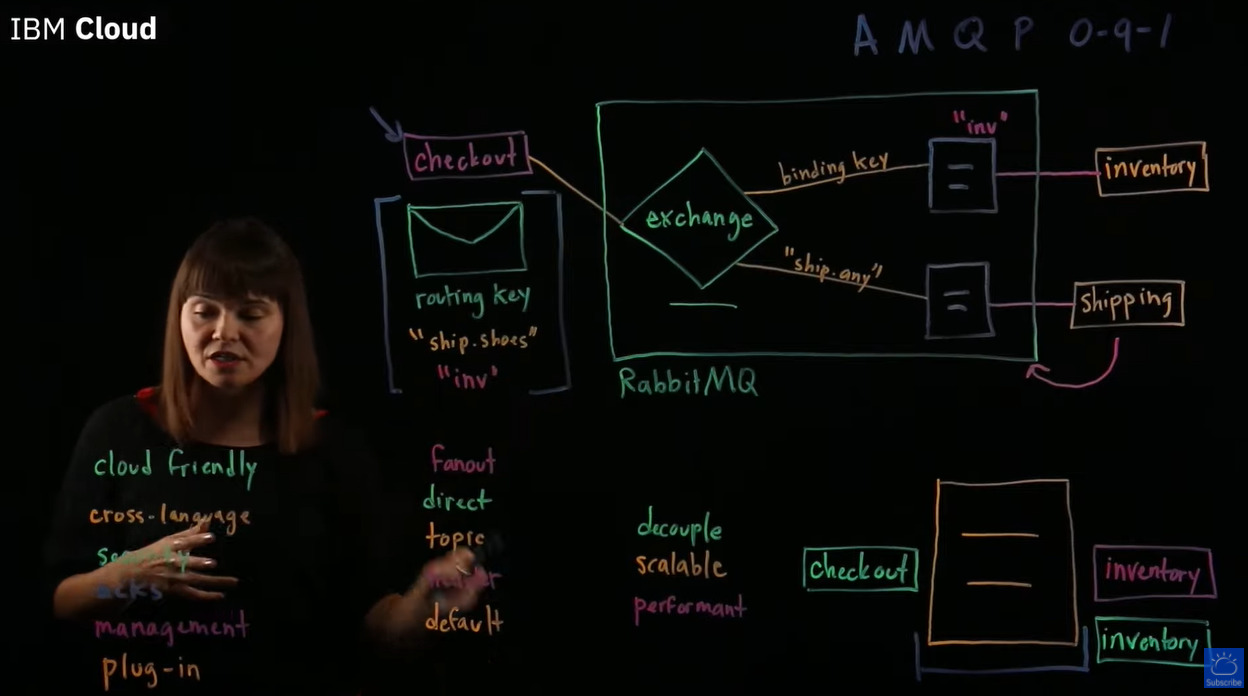 IBM Cloud
AMQP 0-9-1
checkout
routing key
"ship.shoes"
"inv"
exchange
binding key
"ship.any"
"inv"
inventory
shipping
RabbitMQ
cloud friendly
cross-language
security
acks
management
plug-in
fanout
direct
topic
default
decouple
scalable
performant
checkout
inventory
inventory
Subscribe